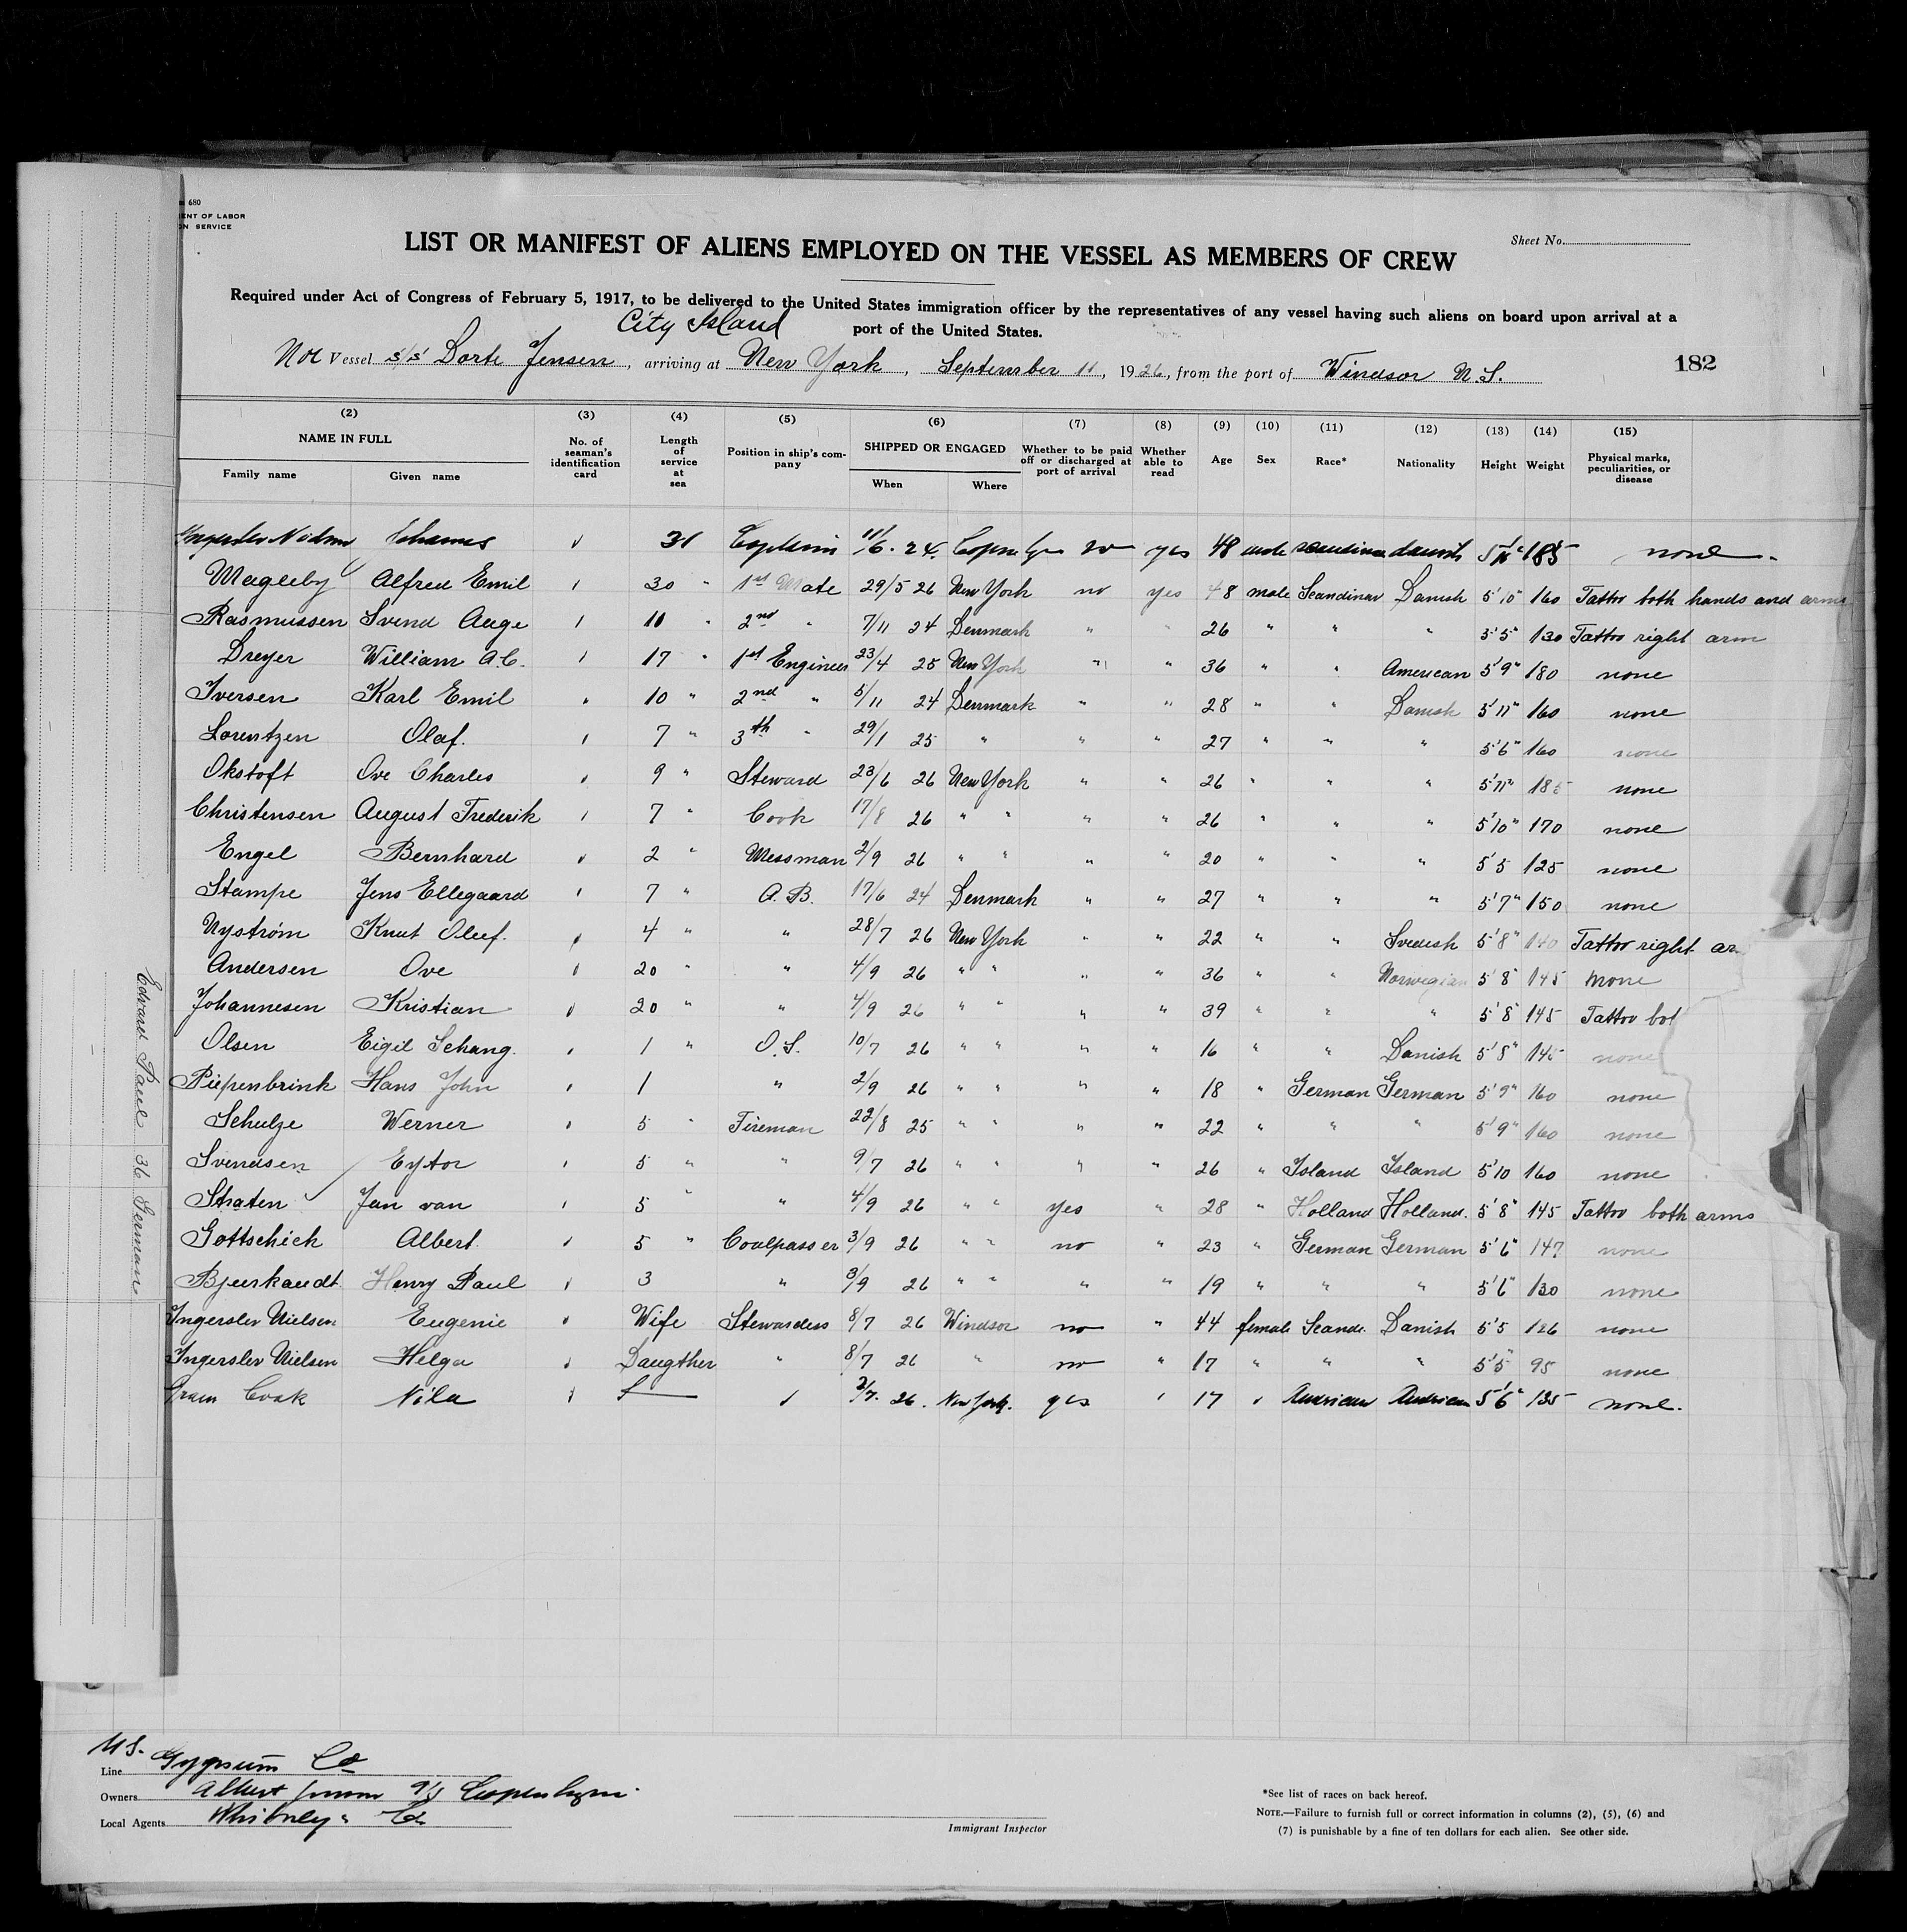 680
ENT OF LABOR
ON SERVICE
Sheet No.
LIST OR MANIFEST OF ALIENS EMPLOYED ON THE VESSEL AS MEMBERS OF CREW
Required under Act of Congress of February 5, 1917, to be delivered to the United States immigration officer by the representatives of any vessel having such aliens on board upon arrival at a
City Island
port of the United States.
Vessel s/s Dorte Jensen, arriving at New York, September 11, 1926, from the port of Windsor N.S.
182
(2) (3) (4) (5) (6) (7) (8) (9) (10) (11) (12) (13) (14) (15)
NAME IN FULL No. of seaman's identification card Length of service at sea Position in ship's company SHIPPED OR ENGAGED Whether to be paid off or discharged at port of arrival Whether able to read Age Sex Race* Nationality Height Weight Physical marks, peculiarities, or disease
Family name Given name When Where
31 Captain 11/6. 24. no yes 48 male danish 185 none
Magleby Alfred Emil 30 " 1st Mate 29/5 26 New York no yes 48 male Scandinav Danish 5'10" 160 Tattoo both hands and arms
Rasmussen Svend Auge 11 " 2nd " 7/11 24 Denmark " " 26 " " " 5'5" 130 Tattoo right arm
Dreyer William A.C. 17 " 1st Engineer 23/4 25 New York " " 36 " " American 5'9" 180 none
Iversen Karl Emil 10 " 2nd " 5/11 24 Denmark " " 28 " " Danish 5'11" 160 none
Lorentzen Olaf. 7 " 3th " 29/1 25 " " " 27 " " " 5'6" 160 none
Okstoft Ove Charles 9 " Steward 23/6 26 New York " " 26 " " " 5'11" 185 none
Christensen August Frederik 7 " Cook 17/8 26 " " " " 26 " " " 5'10" 170 none
Engel Bernhard 2 " Messman 2/9 26 " " " " 20 " " " 5'5 125 none
Stampe Jens Ellegaard 7 " A.B. 17/6 24 Denmark " " 27 " " " 5'7" 150 none
Nystrøm Knut Oluf. 4 " " 28/7 26 New York " " 22 " " Svedish 5'8" 140 Tattoo right ar
Andersen Ove 20 " " 4/9 26 " " " " 36 " " Norwegian 5'8" 145 none
Johannesen Kristian 20 " " 4/9 26 " " " " 39 " " " 5'8" 145 Tattoo bot
Olsen Eigil Schang. 1 " O.S. 10/7 26 " " " " 16 " " Danish 5'8" 145 none
Piepenbrink Hans John 1 " 2/9 26 " " " " 18 " German German 5'9" 160 none
Schulze Werner 5 " Fireman 22/8 25 " " " " 22 " " " 5'9" 160 none
Svendsen Eytor 5 " " 9/7 26 " " " " 26 " Island Island 5'10 160 none
Straten Jan van 5 " " 4/9 26 " " yes " 28 " Holland Holland. 5'8" 145 Tattoo both arms
Gottschick Albert. 5 " Coalpasser 3/9 26 " " no " 23 " German German 5'6" 147 none
Henry Paul 3 " 3/9 26 " " " " 19 " " " 5'6" 130 none
Ingerslev Nielsen Eugenie Wife Stewardess 8/7 26 Windsor no " 44 female Scand. Danish 5'5 126 none
Ingerslev Nielsen Helga Daugther " 8/7 26 " no " 17 " " " 5'5" 95 none
Cook Nila 26. New York. yes 17 American American 5'6" 135 none.
Edward Paul 36 German
Line U.S. Gypsum Co
Owners Albert Jensen Copenhagen
Local Agents Whitney & Co
Immigrant Inspector
*See list of races on back hereof.
NOTE.—Failure to furnish full or correct information in columns (2), (5), (6) and
(7) is punishable by a fine of ten dollars for each alien. See other side.